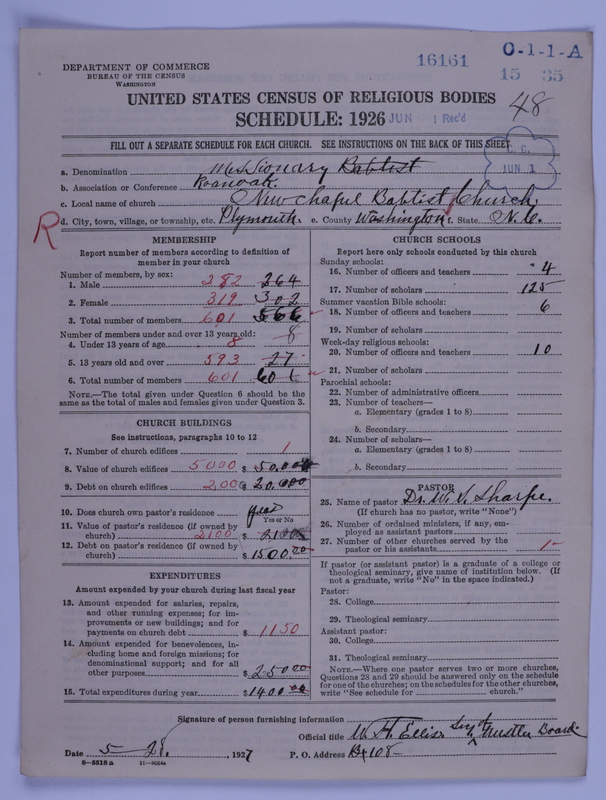 16161
O-1-1-A
15 35
DEPARTMENT OF COMMERCE
BUREAU OF THE CENSUS
WASHINGTON
UNITED STATES CENSUS OF RELIGIOUS BODIES
SCHEDULE: 1926
JUN 1 Rec'd
48
FILL OUT A SEPARATE SCHEDULE FOR EACH CHURCH. SEE INSTRUCTIONS ON THE BACK OF THIS SHEET.
JUN 1
a. Denomination Missionary Baptist
b. Association or Conference Roanoak.
c. Local name of church New Chapel Baptist Church.
R
d. City, town, village, or township, etc. Plymouth. e. County Washington f. State N.C.
MEMBERSHIP
Report number of members according to definition of member in your church
Number of members, by sex:
1. Male 282 264
2. Female 319 302
3. Total number of members 601 566
Number of members under and over 13 years old:
4. Under 13 years of age 8 8
5. 13 years old and over 593 27
6. Total number of members 601 601
NOTE.—The total given under Question 6 should be the same as the total of males and females given under Question 3.
CHURCH BUILDINGS
See instructions, paragraphs 10 to 12
7. Number of church edifices 1
8. Value of church edifices 5000 $ 50.00
9. Debt on church edifices 2000 $ 20.000
10. Does church own pastor's residence? yes
Yes or No
11. Value of pastor's residence (if owned by church) 2100 $ 2100
12. Debt on pastor's residence (if owned by church) $ 1500.00
EXPENDITURES
Amount expended by your church during last fiscal year
13. Amount expended for salaries, repairs, and other running expenses; for improvements or new buildings; and for payments on church debt $ 1150
14. Amount expended for benevolences, including home and foreign missions; for denominational support; and for all other purposes $ 250 00
15. Total expenditures during year $ 1400 00
CHURCH SCHOOLS
Report here only schools conducted by this church
Sunday schools:
16. Number of officers and teachers 4
17. Number of scholars 125
Summer vacation Bible schools:
18. Number of officers and teachers 6
19. Number of scholars
Week-day religious schools:
20. Number of officers and teachers 10
21. Number of scholars
Parochial schools:
22. Number of administrative officers
23. Number of teachers—
a. Elementary (grades 1 to 8)
b. Secondary
24. Number of scholars—
a. Elementary (grades 1 to 8)
b. Secondary
PASTOR
25. Name of pastor Dr. W. S. Sharpe.
(If church has no pastor, write "None")
26. Number of ordained ministers, if any, employed as assistant pastors
27. Number of other churches served by the pastor or his assistants 1
If pastor (or assistant pastor) is a graduate of a college or theological seminary, give name of institution below. (If not a graduate, write "No" in the space indicated.)
Pastor:
28. College
29. Theological seminary
Assistant pastor:
30. College
31. Theological seminary
NOTE.—Where one pastor serves two or more churches, Questions 28 and 29 should be answered only on the schedule for one of the churches; on the schedules for the other churches, write "See schedule for church."
Signature of person furnishing information
Official title W. H. Ellison Trustee Board
Date 5-28, 1927 P. O. Address Bx 108
8-5518a 11-9054a